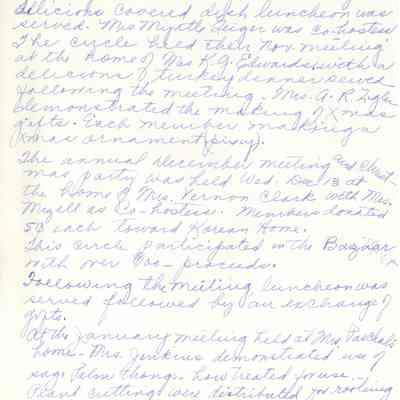 Delicious covered dish luncheon was
served. Mrs Myrtle Geiger was co-hostess
The circle held their Nov. meeting
at the home of Mrs K. G. Edwards, with a
delicious turkey dinner served
following the meeting. Mrs. A. R. Zigler
demonstrated the making of Xmas
gifts. Each member making a
Xmas ornament
The annual december meeting and Christ-
mas party was held Wed. Dec 13 at
the home of Mrs. Vernon Clark with Mrs.
as Co-hostess. Members donated
50¢ each toward Korean Home.
This circle participated in the Bazaar
with over proceeds.
Following the meeting luncheon was
served followed by an exchange of
gifts.
At the January meeting held at Mrs. Paschal's
home. Mrs. Jenkins demonstrated use of
sago Palm. how treated for use.
Plant cuttings were distributed for rooting